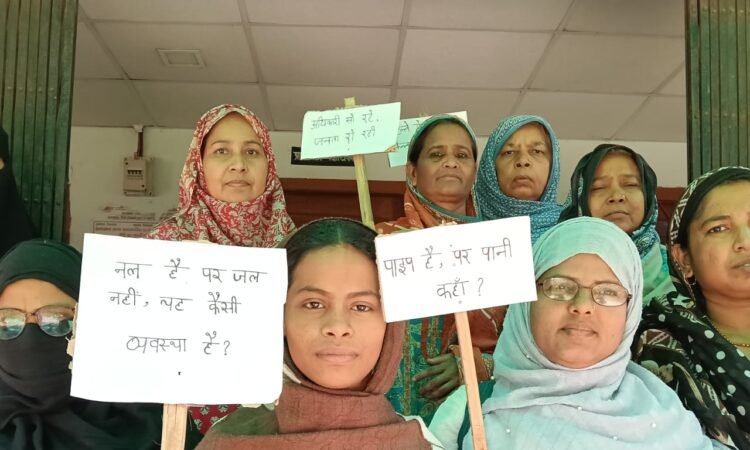 अधिकारी सो रहे,
जनता रो रही
नल है पर जल
नहीं, यह कैसी
व्यवस्था है?
पाइप है, पर पानी
कहाँ ?